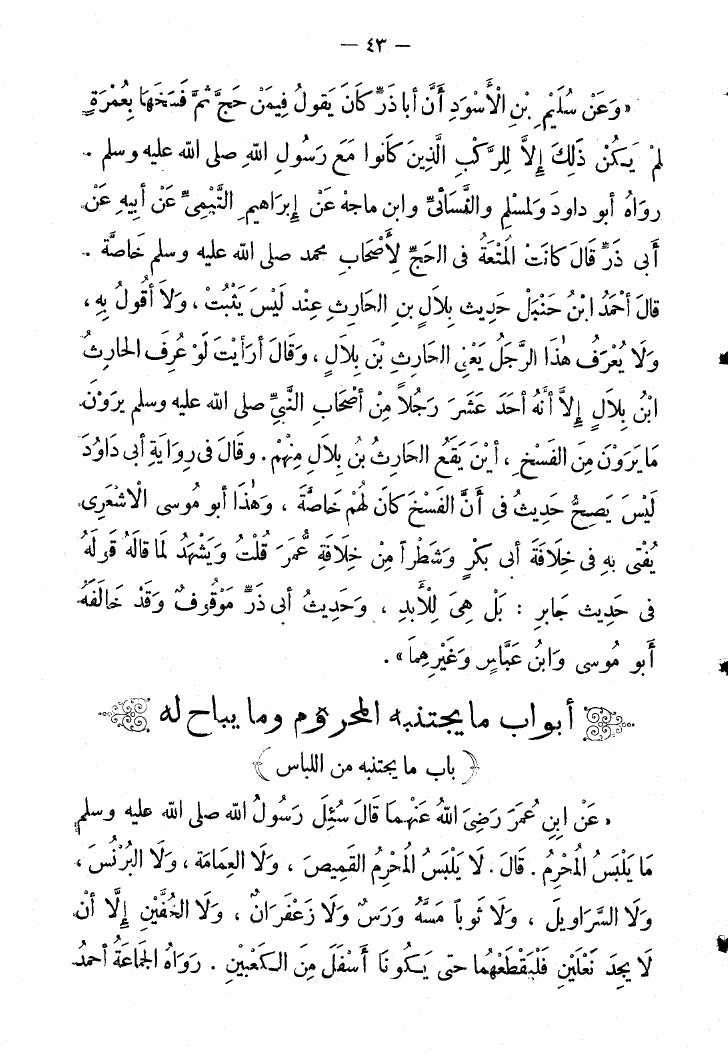 — ٤٣ —
«وَعَنْ سُلَيْمِ بْنِ الْأَسْوَدِ أَنَّ أَبَا ذَرٍّ كَانَ يَقُولُ فِيمَنْ حَجَّ ثُمَّ فَسَخَهَا بِعُمْرَةٍ
لَمْ يَكُنْ ذَلِكَ إِلاَّ لِلرَّكْبِ الَّذِينَ كَانُوا مَعَ رَسُولِ اللهِ صلى الله عليه وسلم .
رَوَاهُ أبو داودَ وَلِمُسْلِمٍ والنَّسَائِيِّ وابن ماجهْ عَنْ إِبْرَاهِيمَ التَّيْمِيِّ عَنْ أَبِيهِ عَنْ
أَبى ذَرٍّ قَالَ كَانَتْ الْمُتْعَةُ فى الحَجِّ لِأَصْحَابِ محمد صلى الله عليه وسلم خَاصَّةً .
قالَ أَحْمَدُ ابْنُ حَنْبَلٍ حَدِيثُ بِلاَلِ بنِ الحَارِثِ عِنْد لَيْسَ يَثْبُتُ ، وَلاَ أَقُولُ بِهِ ،
وَلاَ يُعْرَفُ هٰذَا الرَّجُلُ يَعْنِى الحَارِثَ بْنَ بِلاَلٍ ، وَقَالَ أَرَأَيْتَ لَوْ عُرِفَ الحَارِثُ
ابْنُ بِلاَلٍ إِلاَّ أَنَّهُ أَحَدَ عَشَرَ رَجُلاً مِنْ أَصْحَابِ النَّبِيِّ صلى الله عليه وسلم يَرَوْنَ
مَا يَرَوْنَ مِنَ الفَسْخِ ، أَيْنَ يَقَعُ الحَارِثُ بْنُ بِلاَلٍ مِنْهُمْ . وقَالَ فى رِوَايَةِ أبى دَاوُدَ
لَيْسَ يَصِحُّ حَدِيثٌ فى أَنَّ الفَسْخَ كَانَ لَهُمْ خَاصَّةً ، وَهٰذَا أبو مُوسى الْأَشْعَرِى
يُفْتِى بِهِ فى خِلاَفَةِ أَبى بَكْرٍ وَشَطْراً مِنْ خِلاَفَةِ عُمَرَ قُلْتُ وَيَشْهَدُ لِمَا قالَهُ قَوْلُهُ
فى حَدِيث جَابِرٍ : بَلْ هِيَ لِلْأَبَدِ ، وَحَدِيثُ أَبى ذَرٍّ مَوْقُوفٌ وَقَدْ خَالَفَهُ
أَبو مُوسى وَابْنُ عَبَّاسٍ وَغَيْرِهِمَا» .
أبواب ما يجتنبه المحروم وما يباح له
( باب ما يجتنبه من اللباس )
« عَنْ ابنِ عُمَرَ رَضِيَ اللهُ عَنْهما قَالَ سُئِلَ رَسُولُ الله صلى الله عليه وسلم
مَا يَلْبَسُ الْمُحْرِمُ . قَالَ . لَا يَلْبَسُ الْمُحْرِمُ القَمِيصَ ، وَلاَ العِمَامَة ، وَلاَ البُرْنُسَ ،
وَلاَ السَّرَاوِيلَ ، وَلاَ ثَوباً مَسَّهُ وَرْسٌ وَلاَ زَعْفَرَانٌ ، وَلاَ الخُفَّيْنِ إِلَّا أَنْ
لَا يَجِدَ نَعْلَيْنِ فَلْيَقْطَعْهُما حتى يَكُونَا أَسْفَلَ مِنَ الكَعْبَيْنِ . رَوَاهُ الجَمَاعَةُ أحمدُ